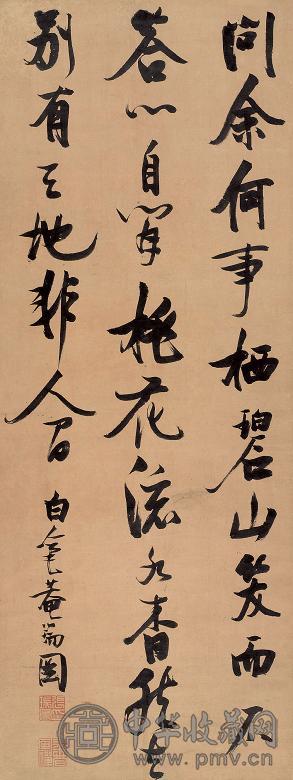 問余何事栖碧山笑而不
答心自閒桃花流水杳然去
別有天地非人間
白毫菴瑞圖
中华收藏网
www.pmv.cn